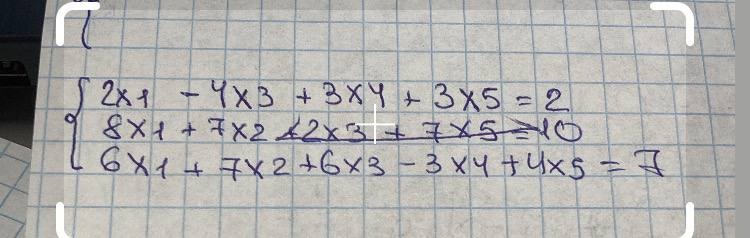 2x1 - 4x3 + 3x4 + 3x5 = 2
8x1 + 7x2 + 2x3 + 7x5 = 10
6x1 + 7x2 + 6x3 - 3x4 + 4x5 = 7